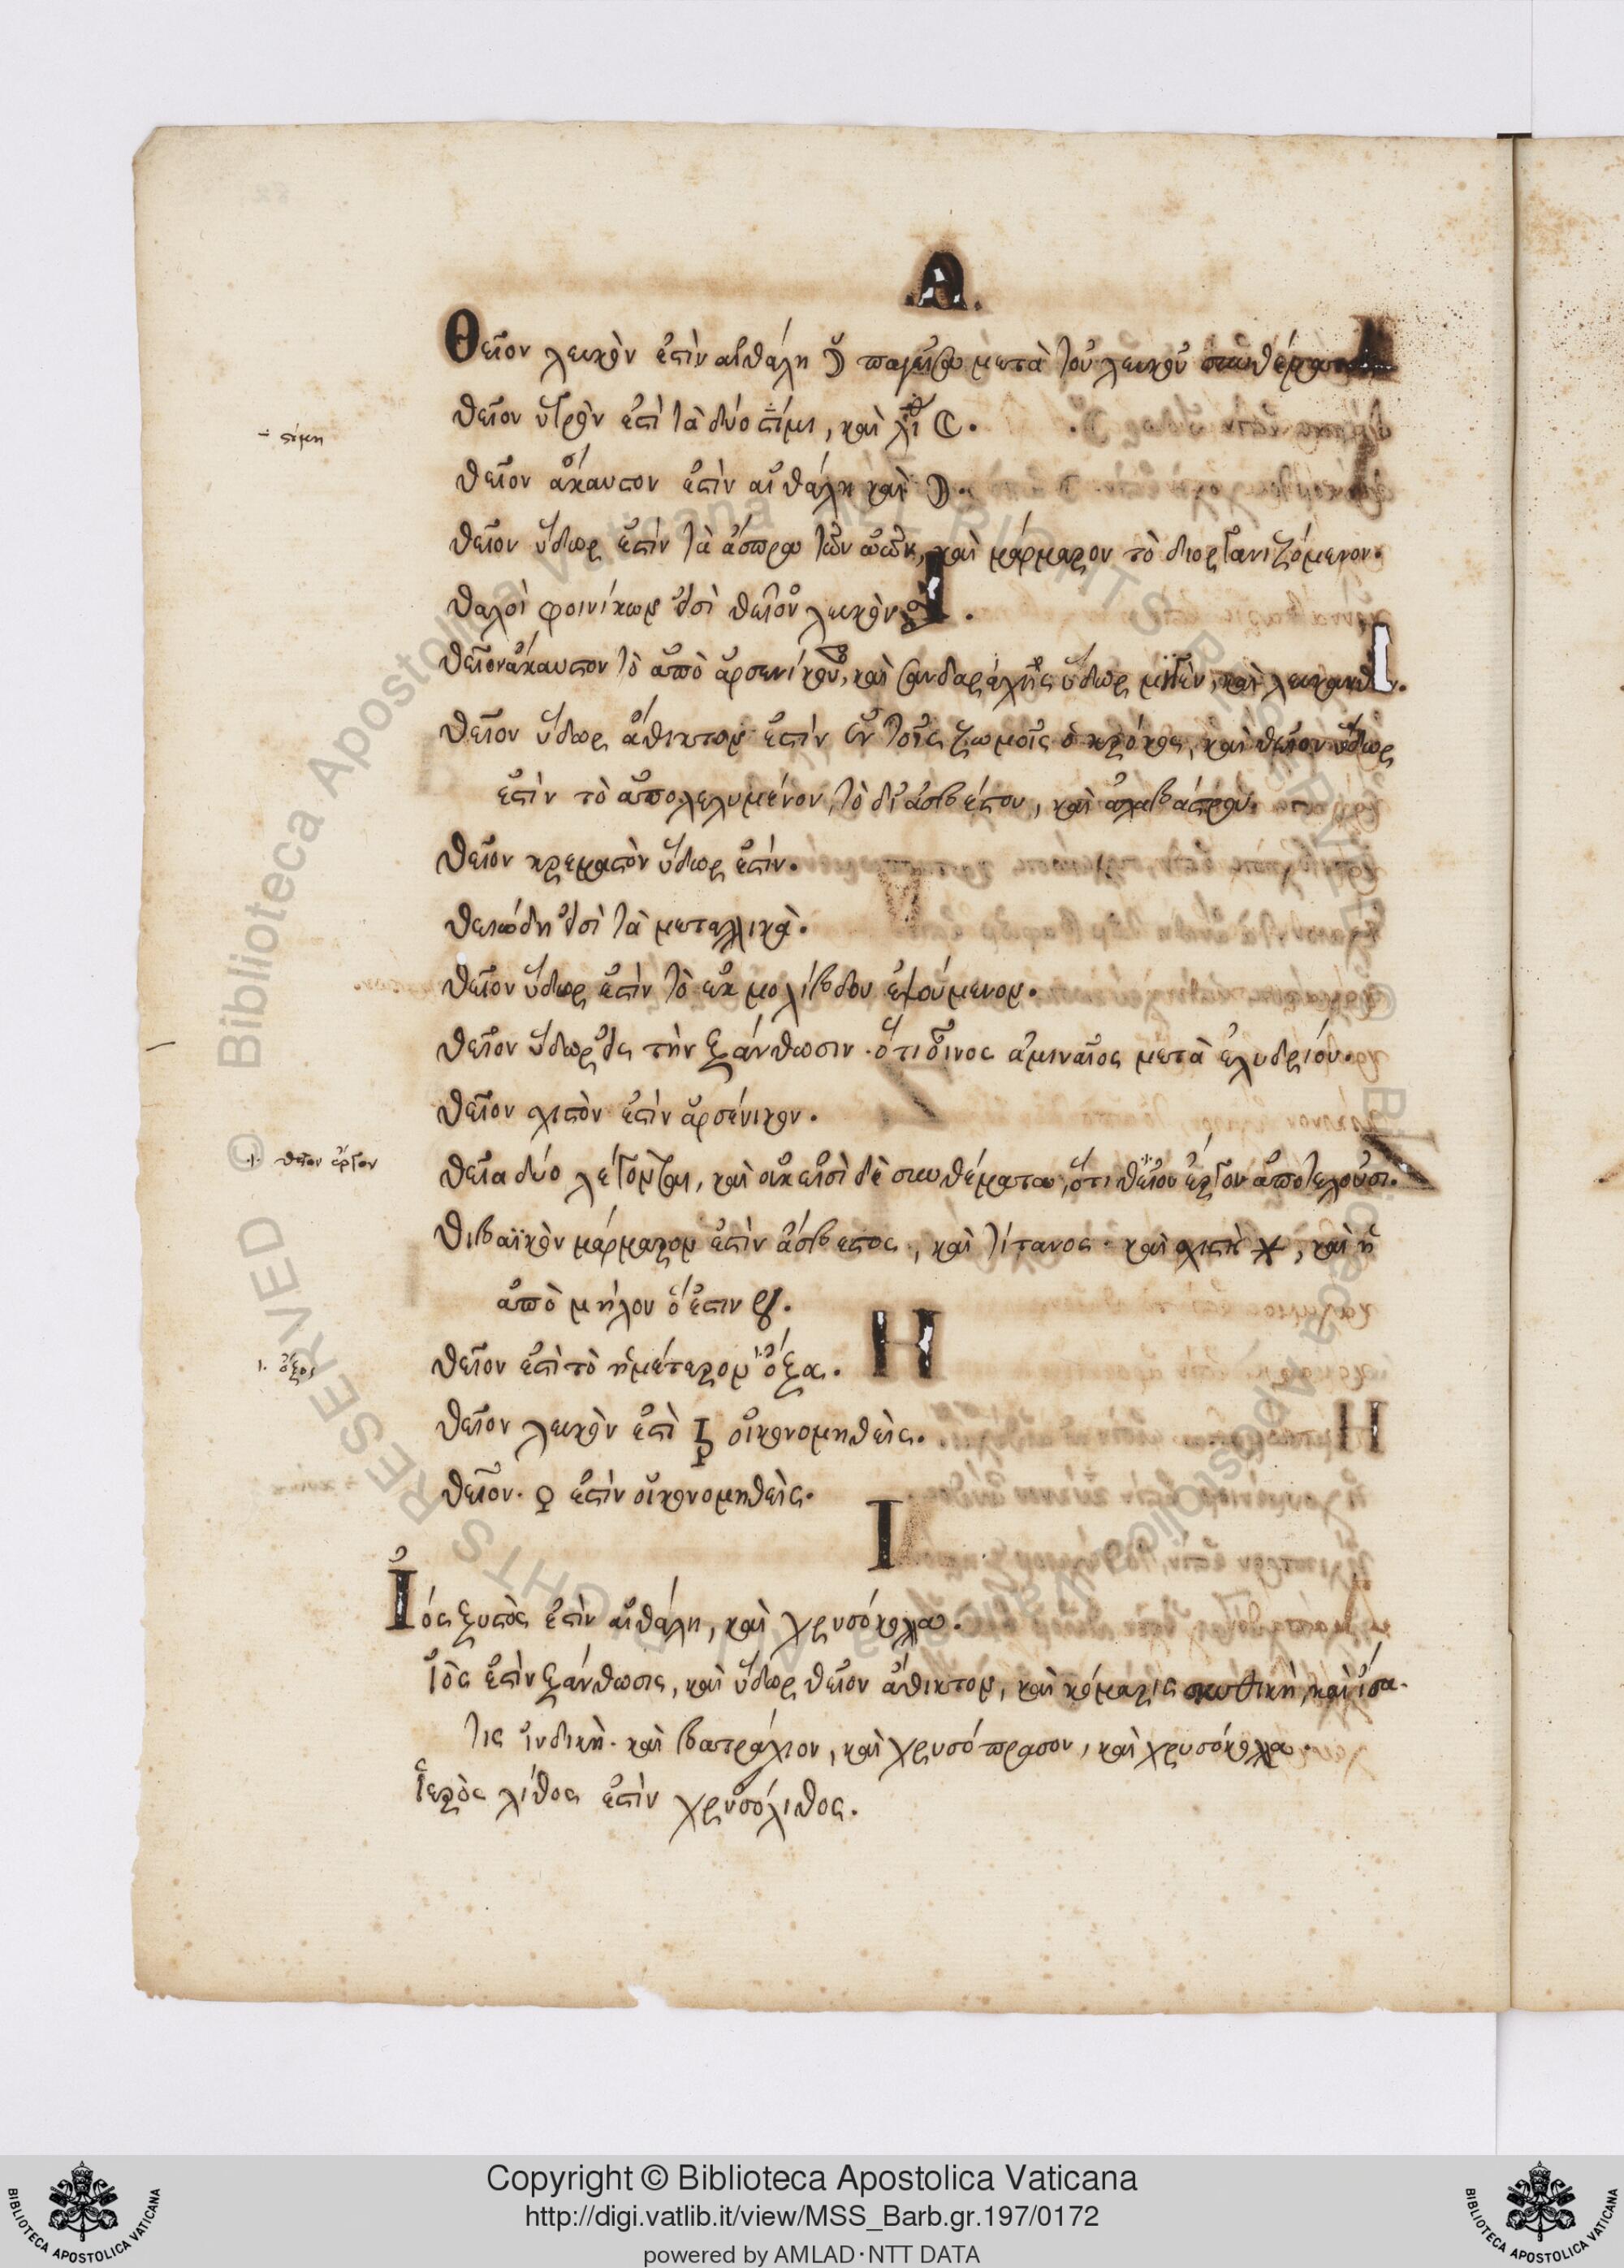 Θ.
Θεῖον λευκὸν ἐστὶν αἰθάλη ☽ παγεῖσα μετὰ τοῦ λευκοῦ
θεῖον ὑγρὸν ἐστὶ τὰ δύο στίμι, καὶ ☾.
÷ στίμη
θεῖον ἄκαυστον ἐστὶν αἰθάλη καὶ ☽.
θεῖον ὕδωρ ἐστὶν τὰ ἄσπρα τῶν ὠῶν, καὶ μάρμαρον τὸ διοργανιζόμενον.
θαλοὶ φοινίκων εἰσὶ θεῖον λευκὸν
θεῖον ἄκαυστον τὸ ἀπὸ ἀρσενίκου, καὶ σανδαράχης ὕδωρ μιγὲν, καὶ
θεῖον ὕδωρ ἄθικτον ἐστὶν ἐν τοῖς ζωμοῖς ὁ κρόκος, καὶ θεῖον ὕδωρ
ἐστὶν τὸ ἀπολελυμένον, τὸ δι' ἀσβέστου, καὶ ἀλαβάστρου.
θεῖον κρεμαστὸν ὕδωρ ἐστίν.
θειώδη εἰσὶ τὰ μεταλλικὰ.
θεῖον ὕδωρ ἐστὶν τὸ ἐκ μολίβδου ἑψούμενον.
θεῖον ὕδωρ εἰς τὴν ξάνθωσιν· ὅτι οἶνος ἀμιναῖος μετὰ ἐλυδρίου.
θεῖον σχιστὸν ἐστὶν ἀρσένικον.
·|· θεῖον ἔργον
θεῖα δύο λέγονται, καὶ οὐκ εἰσὶ δὲ συνθέματα, ὅτι θεῖον ἔργον ἀποτελοῦσι.
θιβαϊκὸν μάρμαρον ἐστὶν ἄσβεστος, καὶ τίτανος· καὶ σχιστὴ ⚹, καὶ ἡ
ἀπὸ μήλου ὅ ἐστιν
θεῖον ἐστὶ τὸ ἡμέτερον ὄξα.
ὄξος
θεῖον λευκὸν ἐστὶ οἰκονομηθεὶς.
θεῖον· ♀ ἐστὶν οἰκονομηθεὶς.
Ι
Ἰός ξυστὸς ἐστὶν αἰθάλη, καὶ χρυσόκολλα.
Ἰὸς ἐστὶν ξάνθωσις, καὶ ὕδωρ θεῖον ἄθικτον, καὶ κόμαρις σκυθικὴ, καὶ ἰσα-
τις ἰνδικὴ· καὶ βατράχιον, καὶ χρυσόπρασον, καὶ χρυσόκολλα.
Ἱερὸς λίθος ἐστὶν χρυσόλιθος.
© Biblioteca Apostolica Vaticana ALL RIGHTS RESERVED
Copyright © Biblioteca Apostolica Vaticana
http://digi.vatlib.it/view/MSS_Barb.gr.197/0172
powered by AMLAD·NTT DATA
BIBLIOTECA APOSTOLICA VATICANA
BIBLIOTECA APOSTOLICA VATICANA